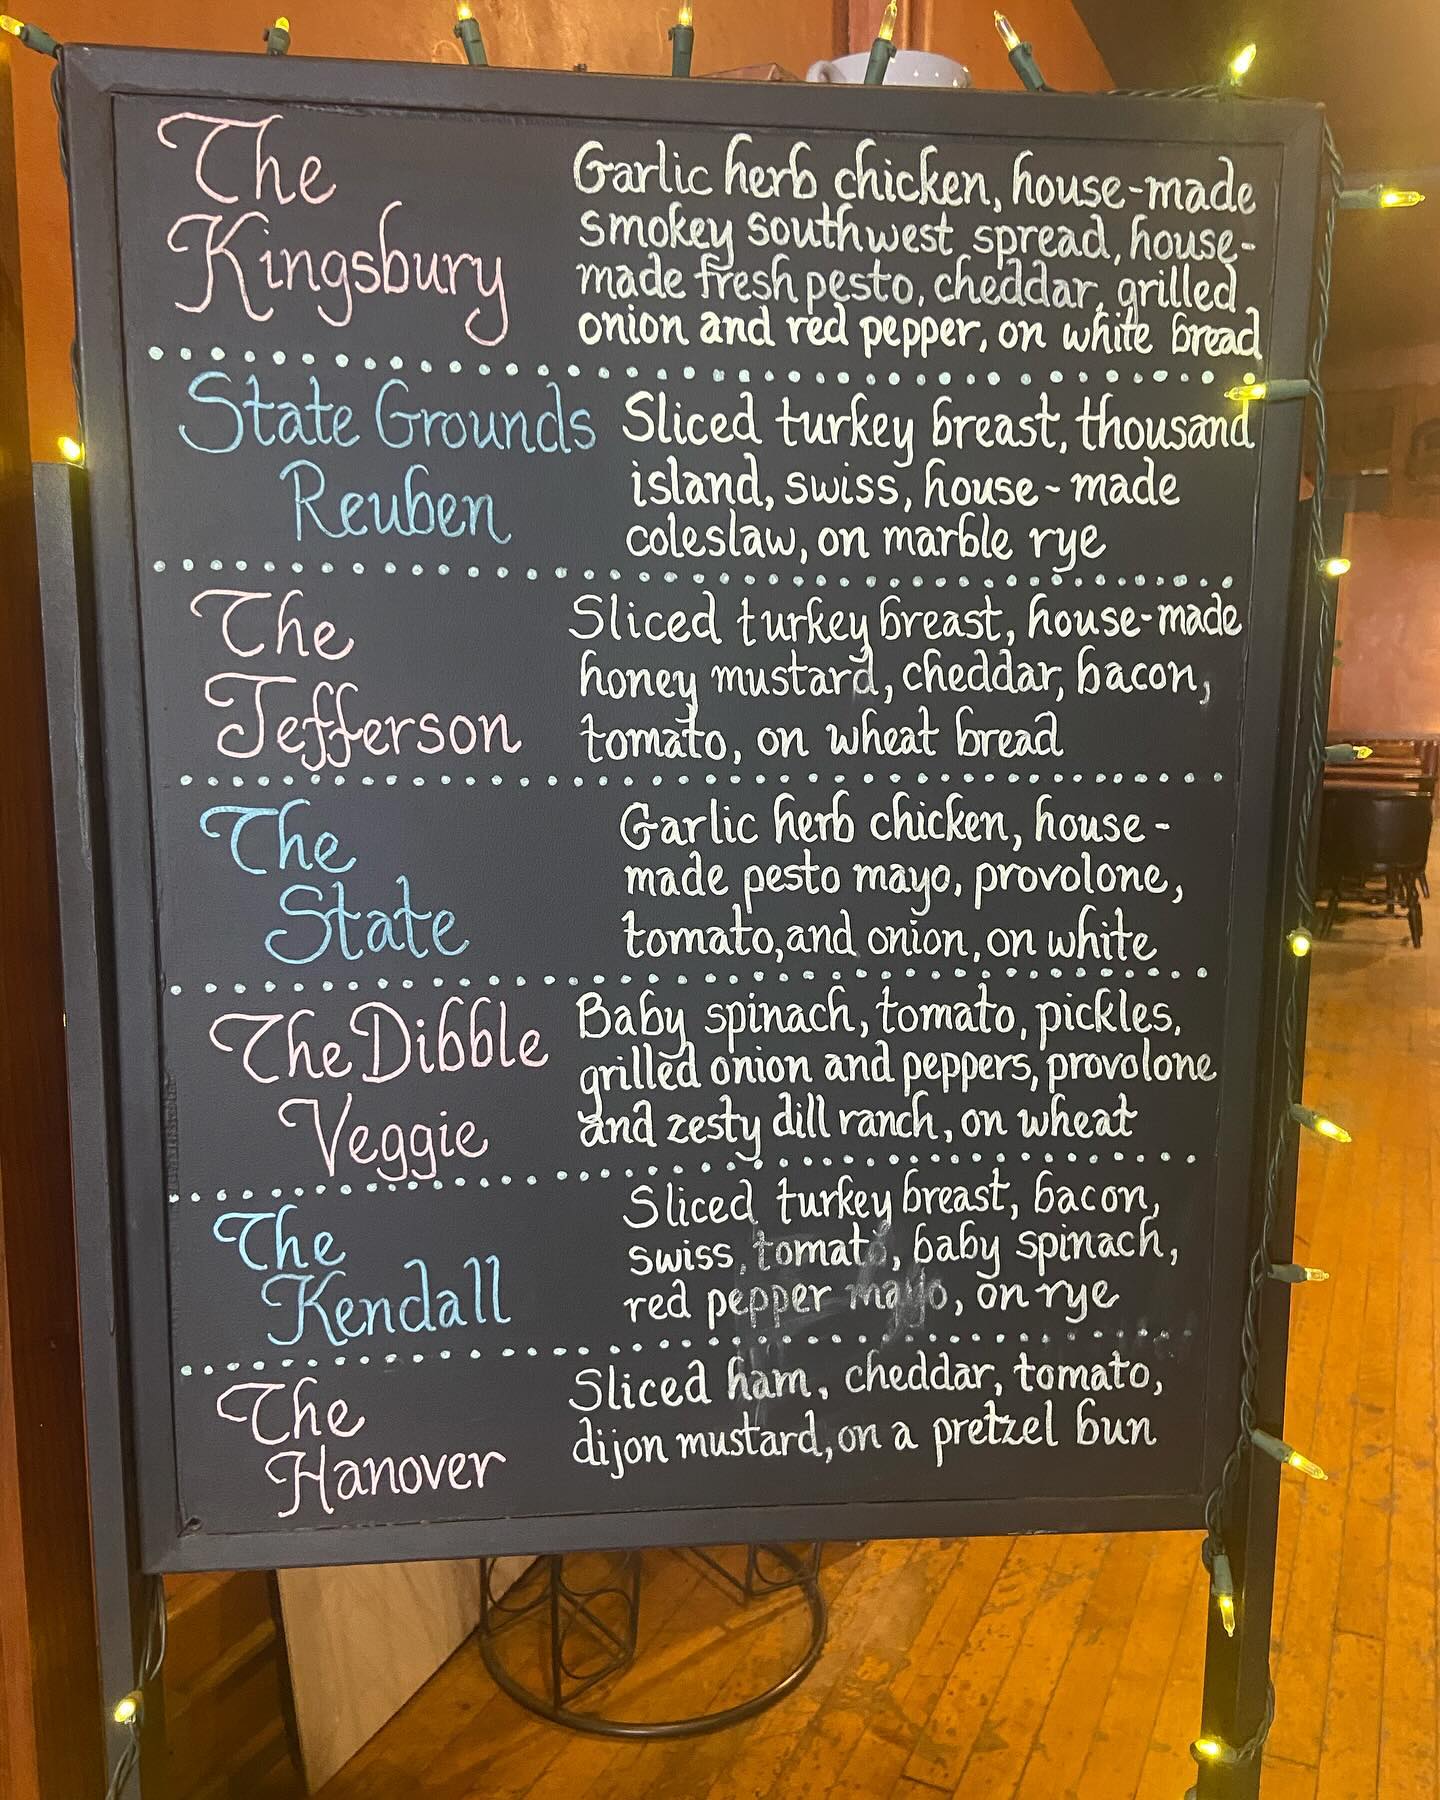 The
Kingsbury
Garlic herb chicken, house-made
smokey southwest spread, house-
made fresh pesto, cheddar, grilled
onion and red pepper, on white bread
State Grounds
Reuben
Sliced turkey breast, thousand
island, swiss, house-made
coleslaw, on marble rye
The
Jefferson
Sliced turkey breast, house-made
honey mustard, cheddar, bacon,
tomato, on wheat bread
The
State
Garlic herb chicken, house-
made pesto mayo, provolone,
tomato, and onion, on white
The Dibble
Veggie
Baby spinach, tomato, pickles,
grilled onion and peppers, provolone
and zesty dill ranch, on wheat
The
Kendall
Sliced turkey breast, bacon,
swiss, tomato, baby spinach,
red pepper mayo, on rye
The
Hanover
Sliced ham, cheddar, tomato,
dijon mustard, on a pretzel bun